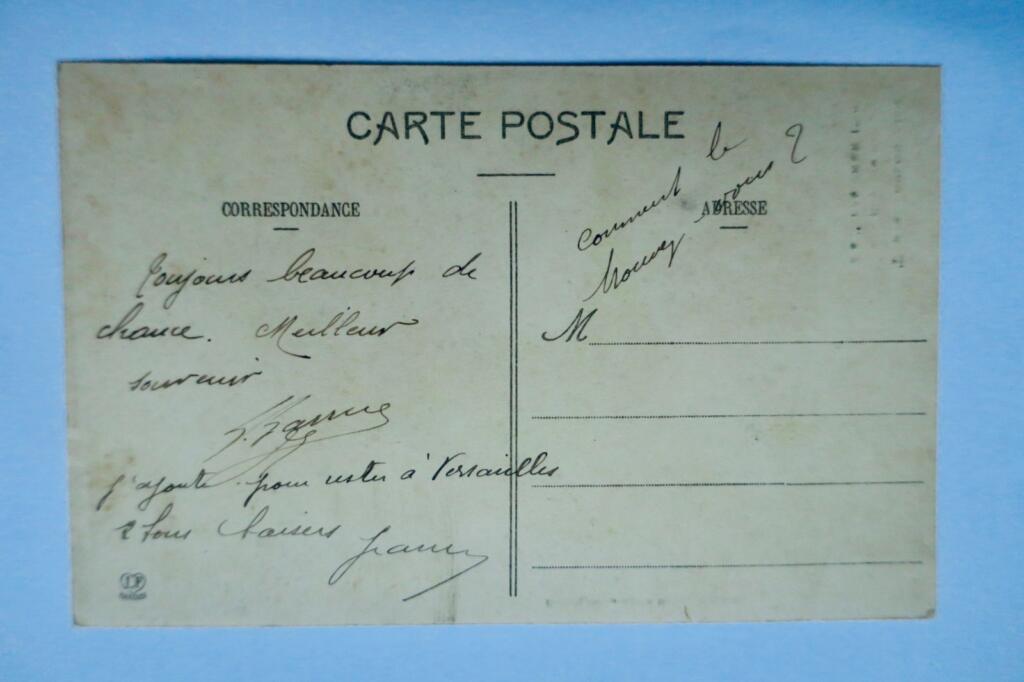 CARTE POSTALE
CORRESPONDANCE
Toujours beaucoup de
chance. Meilleur
souvenir
j'ajoute pour rester à Versailles
2 bons baisers
ADRESSE
comment le
trouvez vous?
M